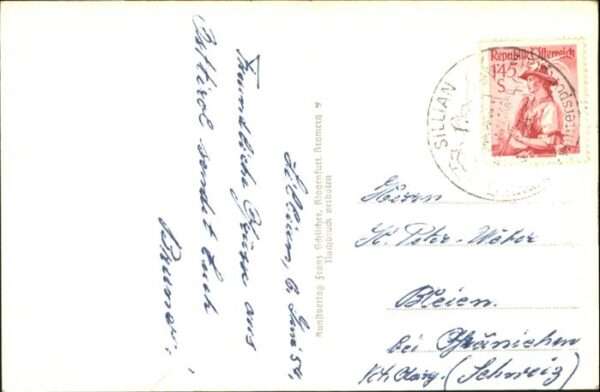 Sillian, 6. Juni 54.
Freundliche Grüsse aus
Osttirol sendet Euch
Bruno.
Kunstverlag Franz Schilcher, Klagenfurt, Kramerg. 7
Nachdruck verboten
Republik Österreich
1'45
S
SILLIAN
Herrn
Peter-Weber
Bleien.
bei Gränichen
Kt. Aarg. (Schweiz)